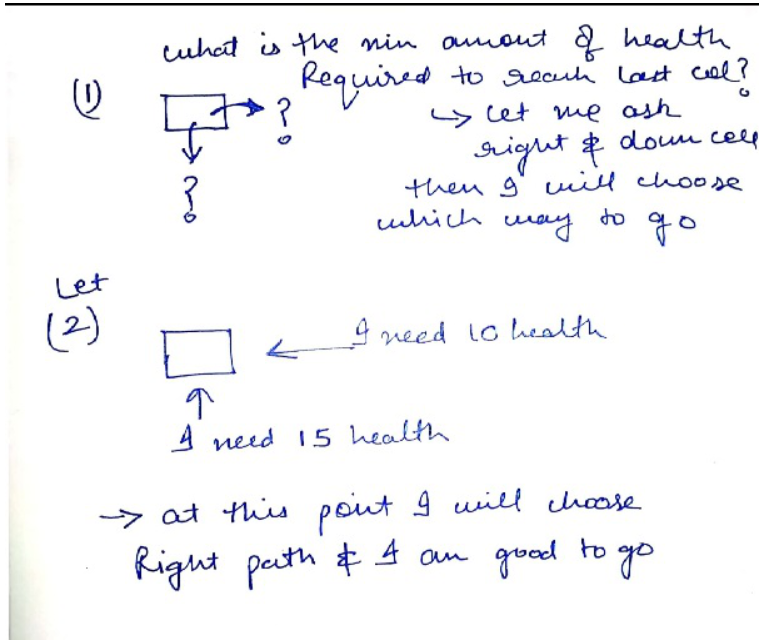 what is the min amount of health
Required to reach last cell?
(1)
?
→ let me ask
right & down cell
?
then I will choose
which way to go
Let
(2)
I need 10 health
I need 15 health
→ at this point I will choose
Right path & I am good to go